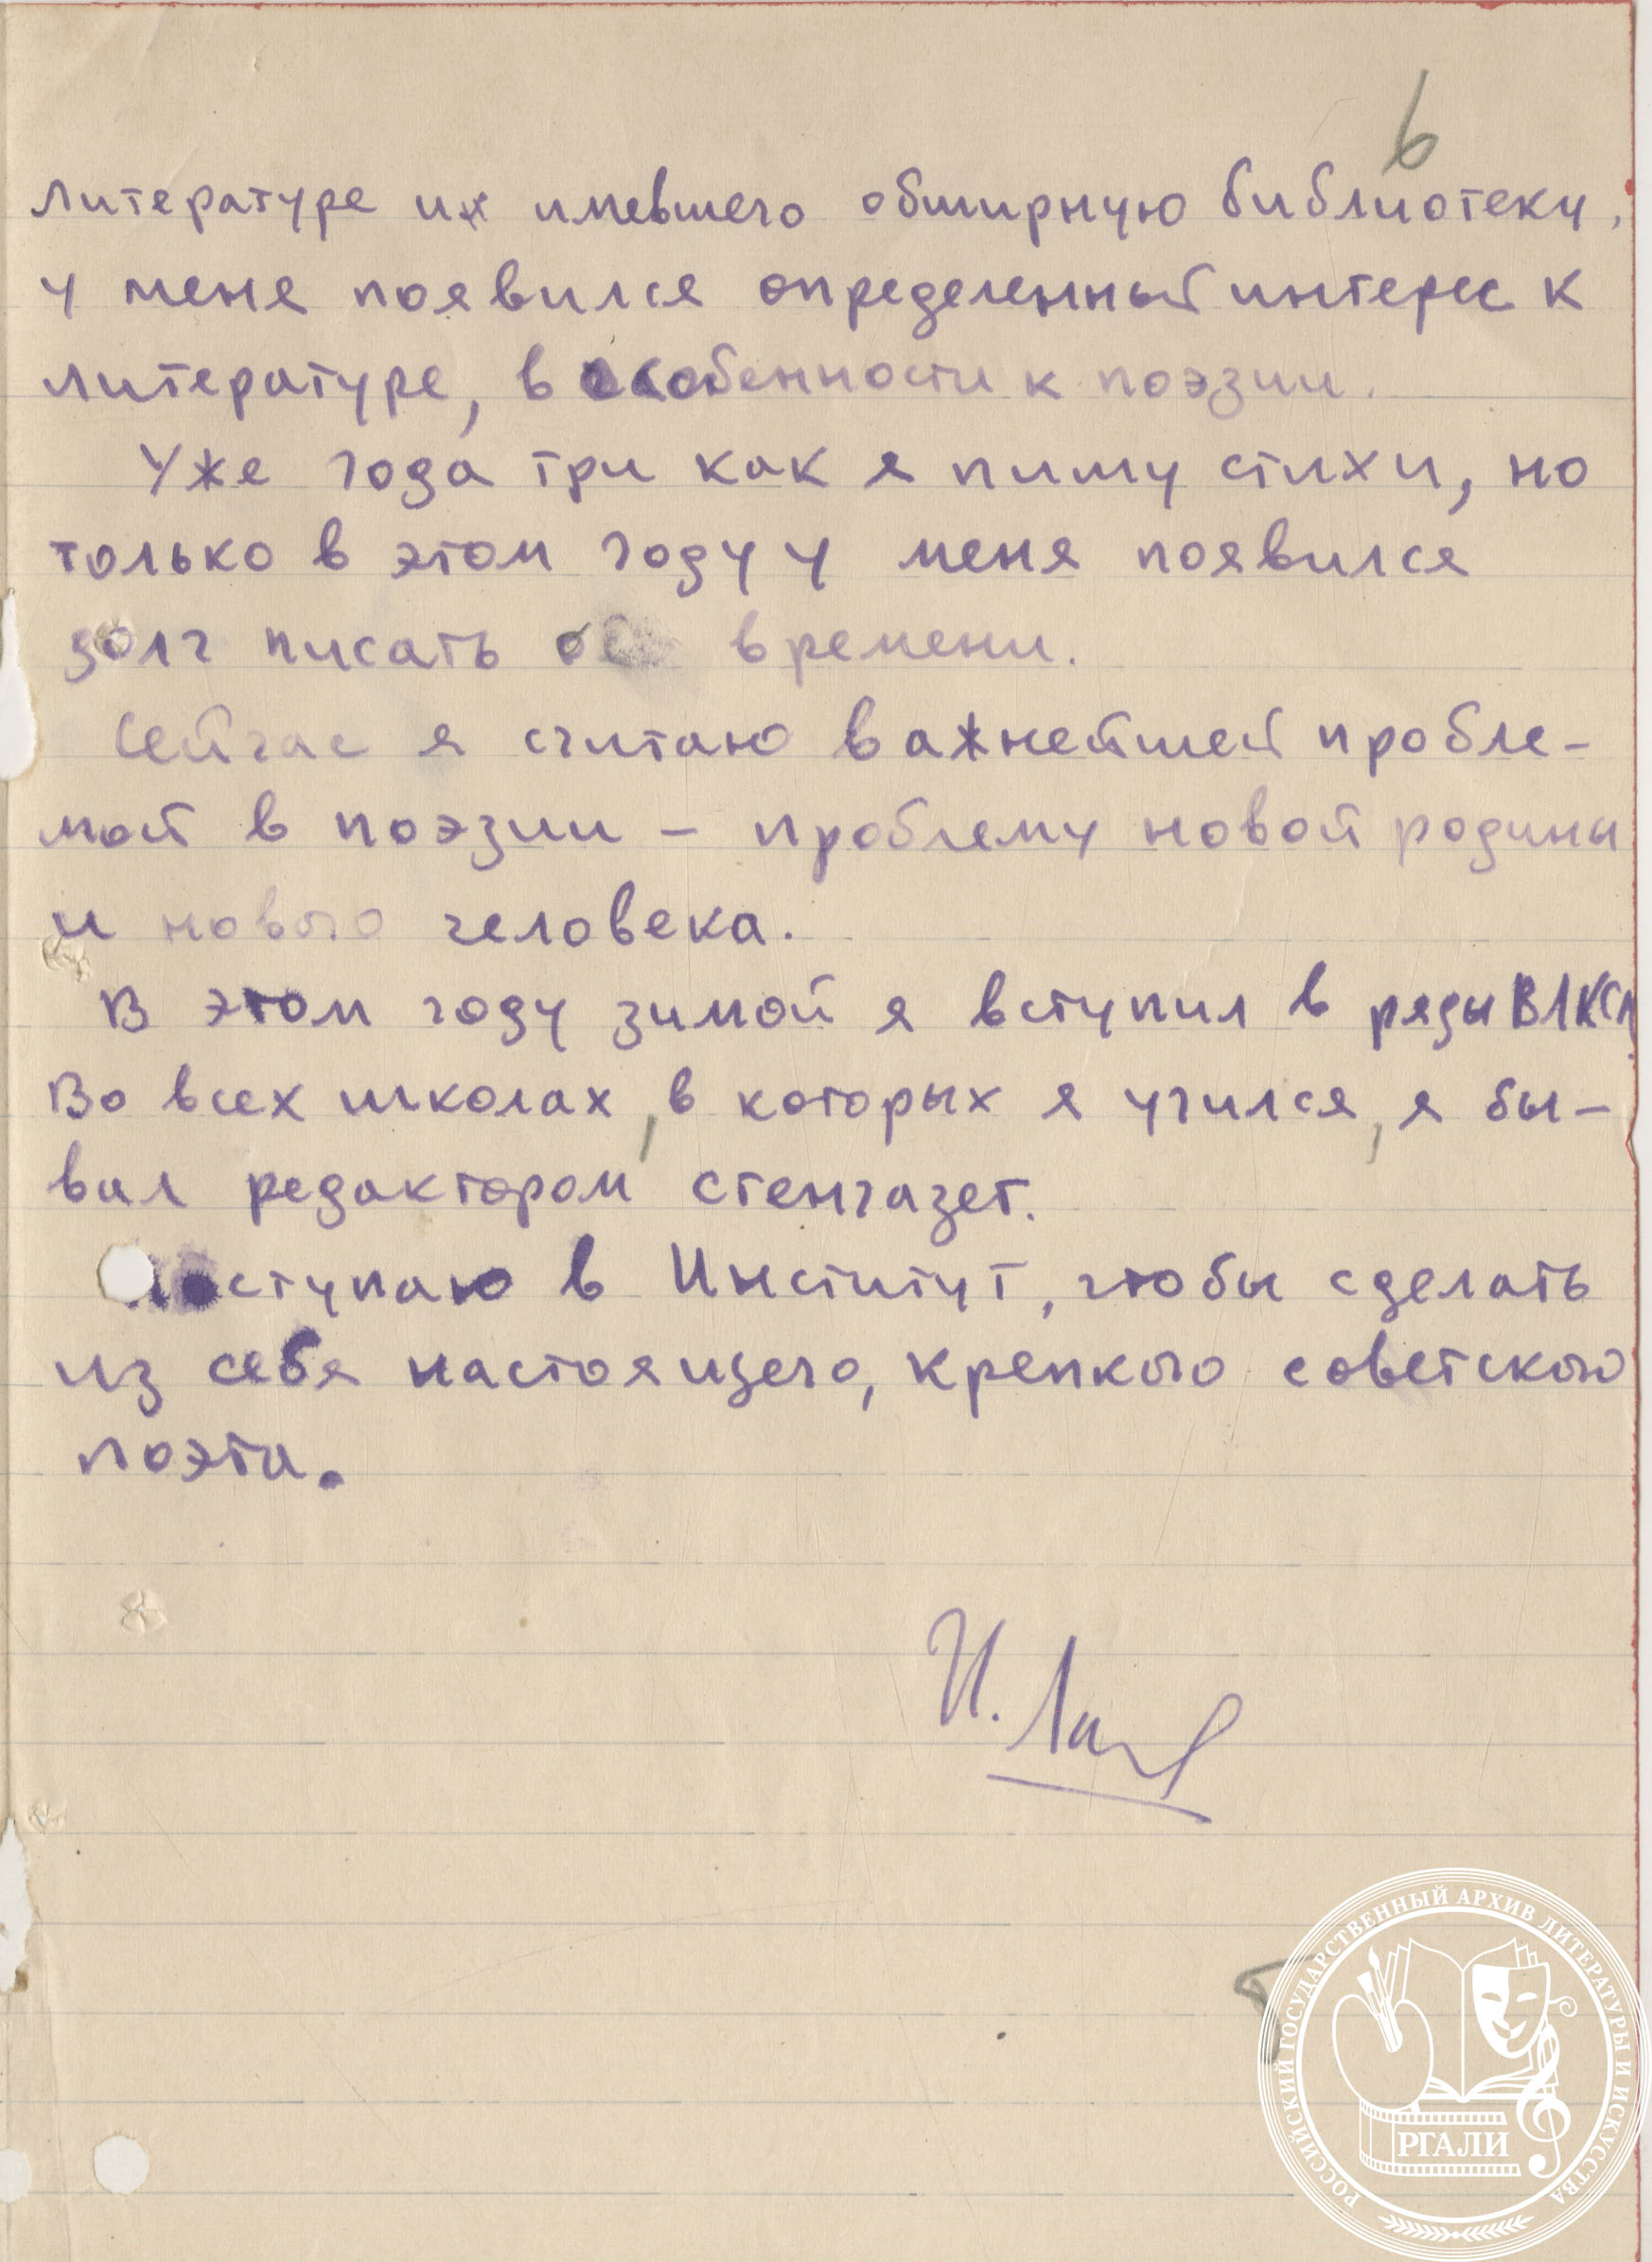 6
литературе и имевшего обширную библиотеку,
у меня появился определенный интерес к
литературе, в особенности к поэзии.
Уже года три как я пишу стихи, но
только в этом году у меня появился
долг писать о времени.
Сейчас я считаю важнейшей пробле-
мой в поэзии – проблему новой родины
и нового человека.
В этом году зимой я вступил в ряды ВЛКСМ.
Во всех школах, в которых я учился, я бы-
вал редактором стенгазет.
Поступаю в Институт, чтобы сделать
из себя настоящего, крепкого советского
поэта.
И.
РОССИЙСКИЙ ГОСУДАРСТВЕННЫЙ АРХИВ ЛИТЕРАТУРЫ И ИСКУССТВА
РГАЛИ